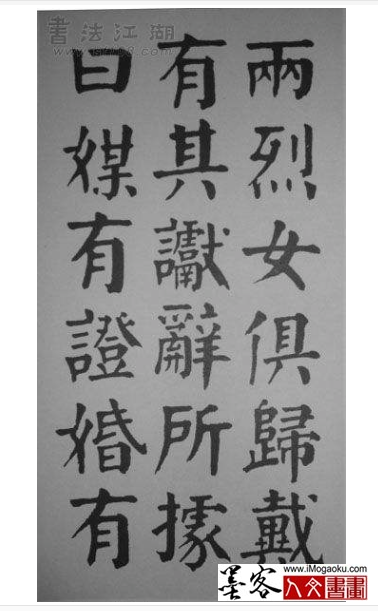 兩烈女俱歸戴
有其讞辭所據
曰媒有證婚有
書法江湖
www.imogaoku.com
墨客
人文書畫